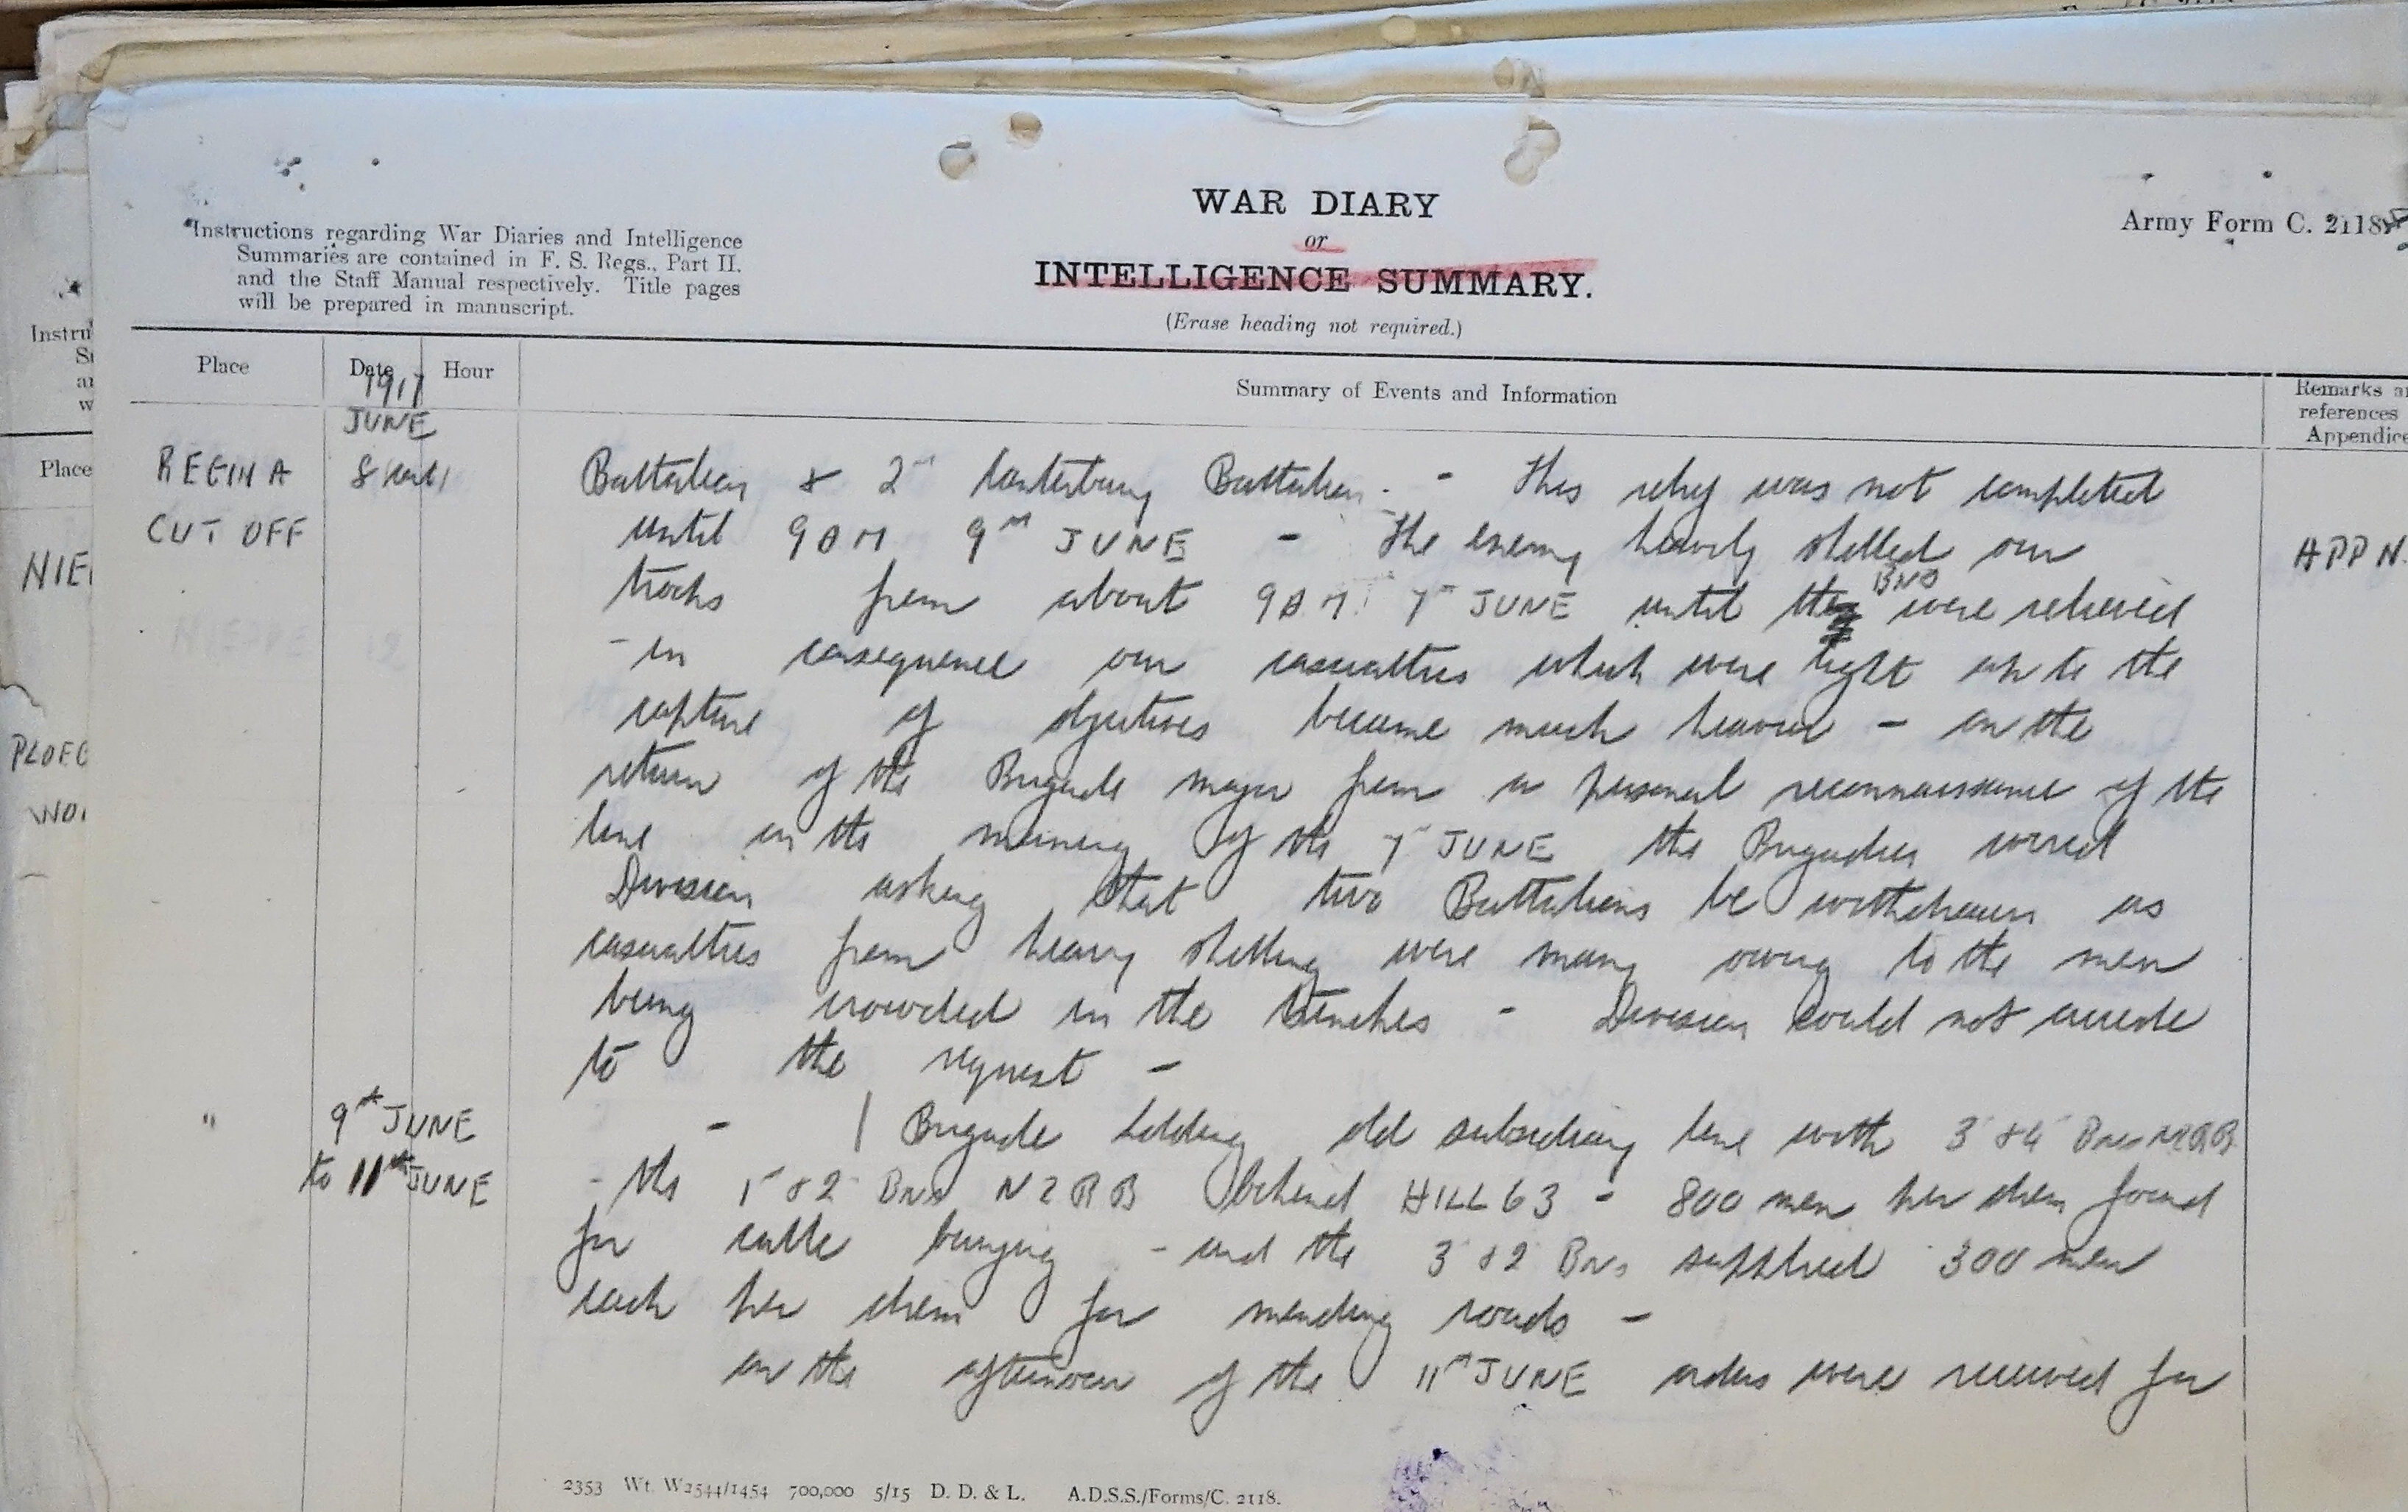 WAR DIARY
or
INTELLIGENCE SUMMARY.
(Erase heading not required.)
Army Form C. 2118.
Instructions regarding War Diaries and Intelligence
Summaries are contained in F. S. Regs., Part II.
and the Staff Manual respectively. Title pages
will be prepared in manuscript.
Instru
Place
NIE
PLOEG
WO
Place Date Hour Summary of Events and Information Remarks a
references
Appendice
1917
JUNE
REGINA
CUT OFF
8
Battalion & 2nd Canterbury Battalion. - This relief was not completed
until 9 AM 9th JUNE - The enemy heavily shelled our
APP N.
trocks from about 9 AM 7th JUNE until the BNS were relieved
- in consequence our casualties which were light up to the
capture of objectives became much heavier - on the
return of the Brigade Major from a personal reconnaissance of the
line in the morning of the 7th JUNE the Brigadier wired
Division asking that two Battalions be withdrawn as
casualties from heavy shelling were many owing to the men
being crowded in the trenches - Division could not accede
to the request -
" 9th JUNE
to 11th JUNE
- Brigade holding old subsidiary line with 3 & 4 Bns NZRB
- the 1 & 2 Bns NZRB behind HILL 63 - 800 men per diem found
for cable burying - and the 3 & 2 Bns supplied 300 men
each per diem for mending roads -
on the afternoon of the 11th JUNE orders were received for
2353 Wt. W2544/1454 700,000 5/15 D. D. & L. A.D.S.S./Forms/C. 2118.